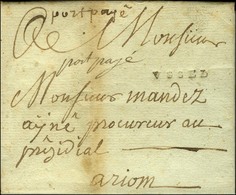 port payé
A Monsieur
port payé
USSEL
Monsieur mandez
ajné procureur au
présidial
ariom